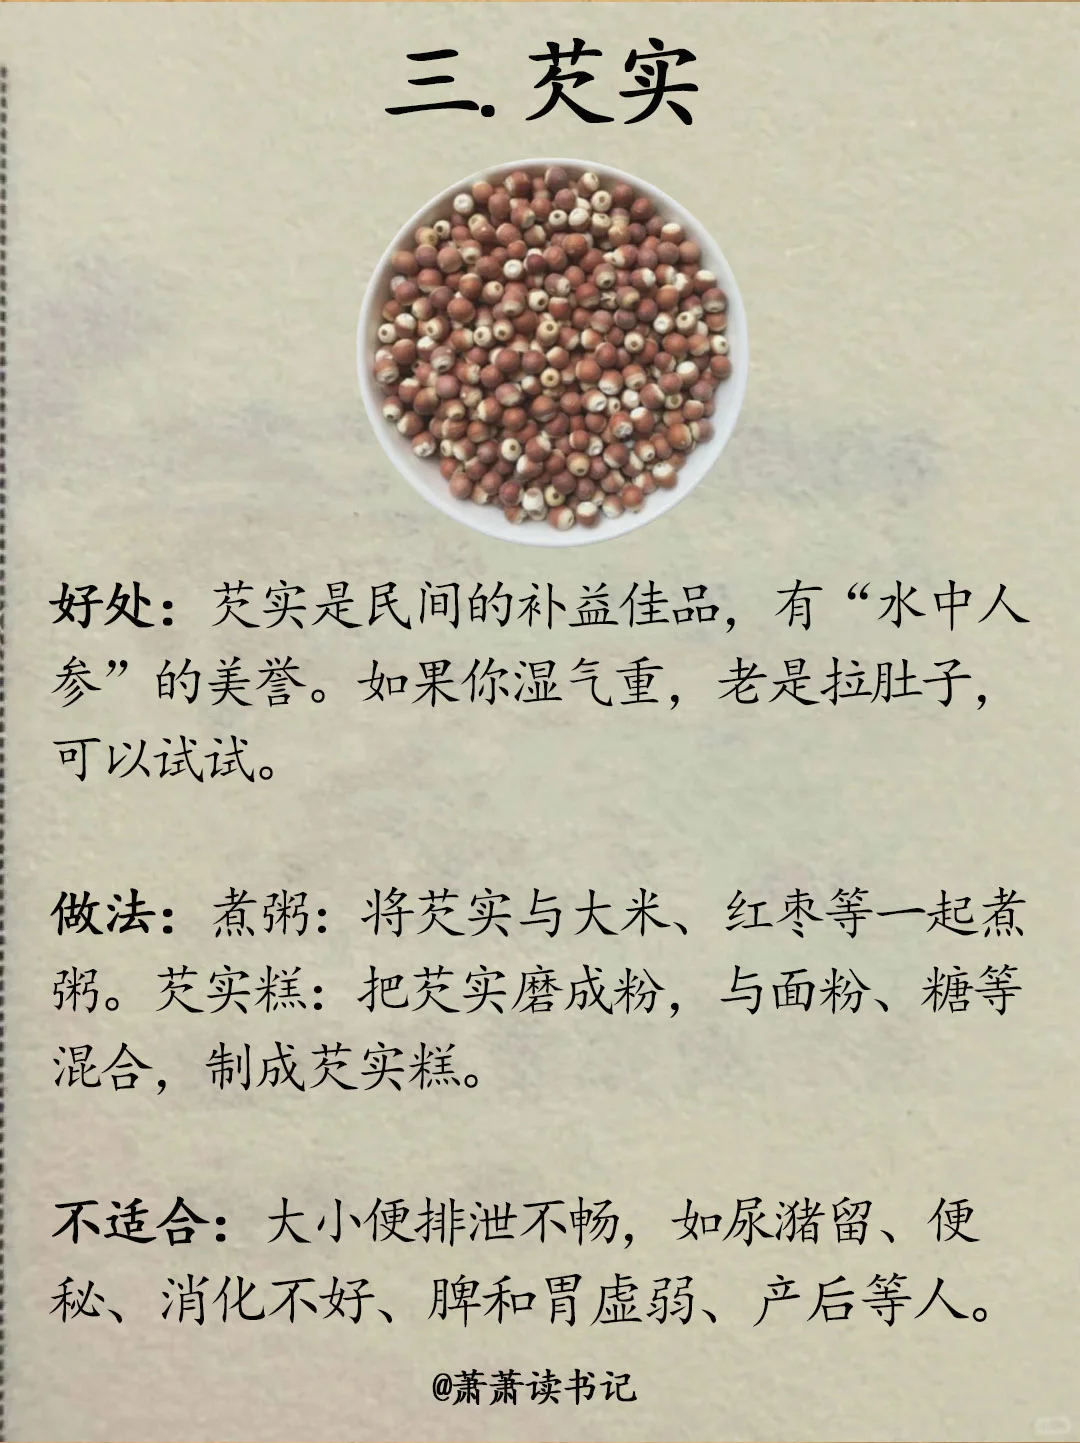 三.芡实
好处：芡实是民间的补益佳品，有“水中人
参”的美誉。如果你湿气重，老是拉肚子，
可以试试。
做法：煮粥：将芡实与大米、红枣等一起煮
粥。芡实糕：把芡实磨成粉，与面粉、糖等
混合，制成芡实糕。
不适合：大小便排泄不畅，如尿潴留、便
秘、消化不好、脾和胃虚弱、产后等人。
@萧萧读书记